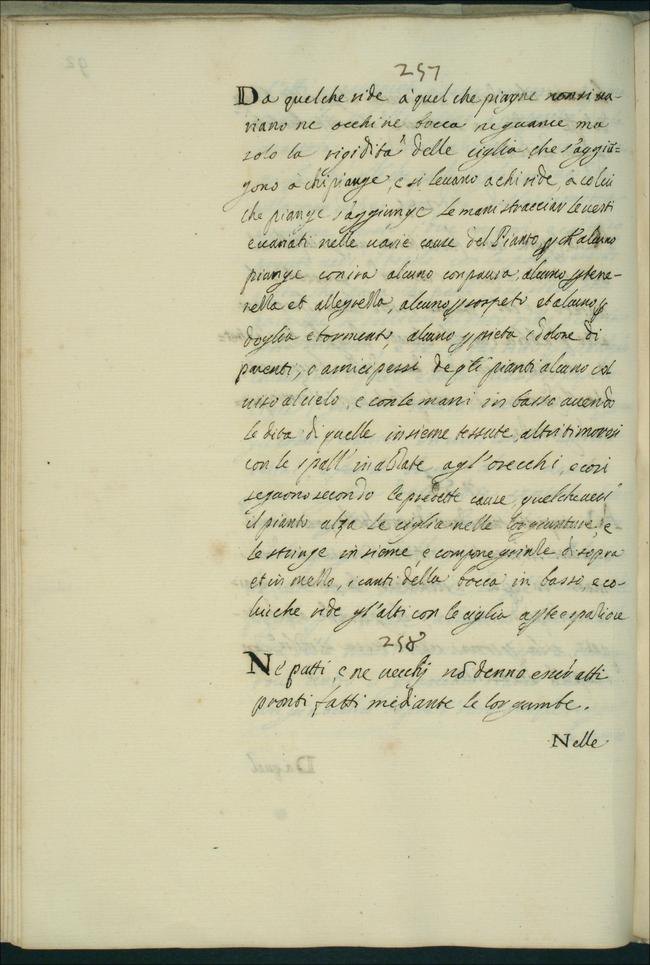 257
Da quel che ride à quel che piagne non si ua-
riano ne occhi ne bocca ne guance ma
solo la rigidità delle ciglia che s'aggiu=
gono a chi piange, e si leuano a chi ride, a colui
che piange s'aggiunge le mani stracciar le uesti
e uariati nelle uarie cause del Pianto, alcuno
piange con ira alcuno con paura, alcuno p tene-
rezza et allegrezza, alcuno p sospeto et alcuno p
doglia e tormento, alcuno p pieta e dolore di
parenti, o amici persi de qti pianti alcuno col
uiso al cielo, e con le mani in basso auendo
le dita di quelle insieme tessute, altri timorosi
con le spall' inalzate agl'orecchi, e cosi
seguono secondo le predette cause, quel che uersa
il pianto alza le ciglia nelle lor giunture, e
le stringe insieme, e compone grinze di sopra
et in mezzo, i canti della bocca in basso, e co-
lui che ride gl'alti con le ciglia apte e spatiose
258
Ne putti, e ne uecchj nõ denno esser atti
pronti fatti mediante le lor gambe.
Nelle